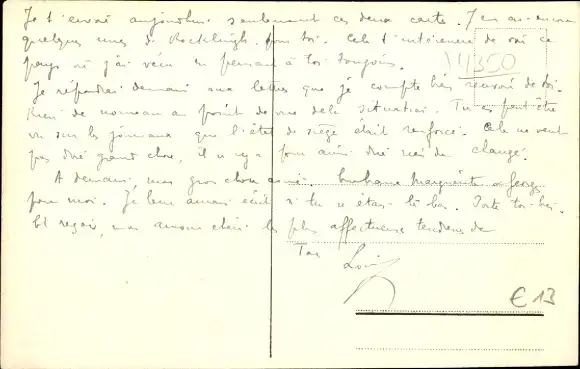 Je t'envoie aujourd'hui seulement ces deux cartes. J'en ai encore
quelques unes de pour toi. Cela t'intéressera de voir ce
pays où j'ai vécu en pensant à toi toujours.
14350
Je répondrai demain aux lettres que je compte bien recevoir de toi.
Rien de nouveau au point de vue de la situation. Tu as peut être
vu sur les journaux que l'état de siège était renforcé. Cela ne veut
pas dire grand chose, il n'y a pour ainsi dire rien de changé.
A demain, mon gros chou aimé. Embrasse Marguerite et Georges
pour moi. Je leur aurais écrit si tu n'étais là bas. Porte toi bien.
Et reçois, mon amour chéri les plus affectueuses tendresses de
Ton
Louis
€ 13